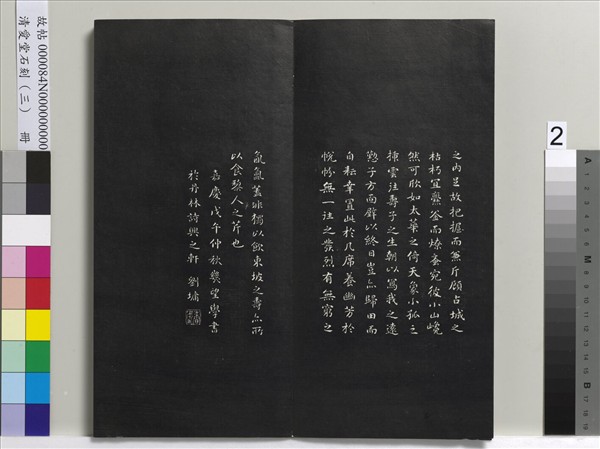 故帖 000084N000000000
清愛堂石刻（三） 冊
之內足故把握而兼斤顧占城之
枯朽宜爨釜而燎蚊宛彼小山巉
然可欣如太華之倚天象小孤之
插雲往壽子之生朝以寫我之遠
懃子方面壁以終日豈亦歸田而
自耘幸置此於几席養幽芳於
帨帉無一往之發烈有無窮之
氤氳蓋非獨以飲東坡之壽亦所
以食黎人之芹也
嘉慶戊午仲秋幾望學書
於丹林詩興之軒 劉墉
2
A 1 2 3 4 5 6 M 8 9 10 11 12 13 14 15 B 17 18 19